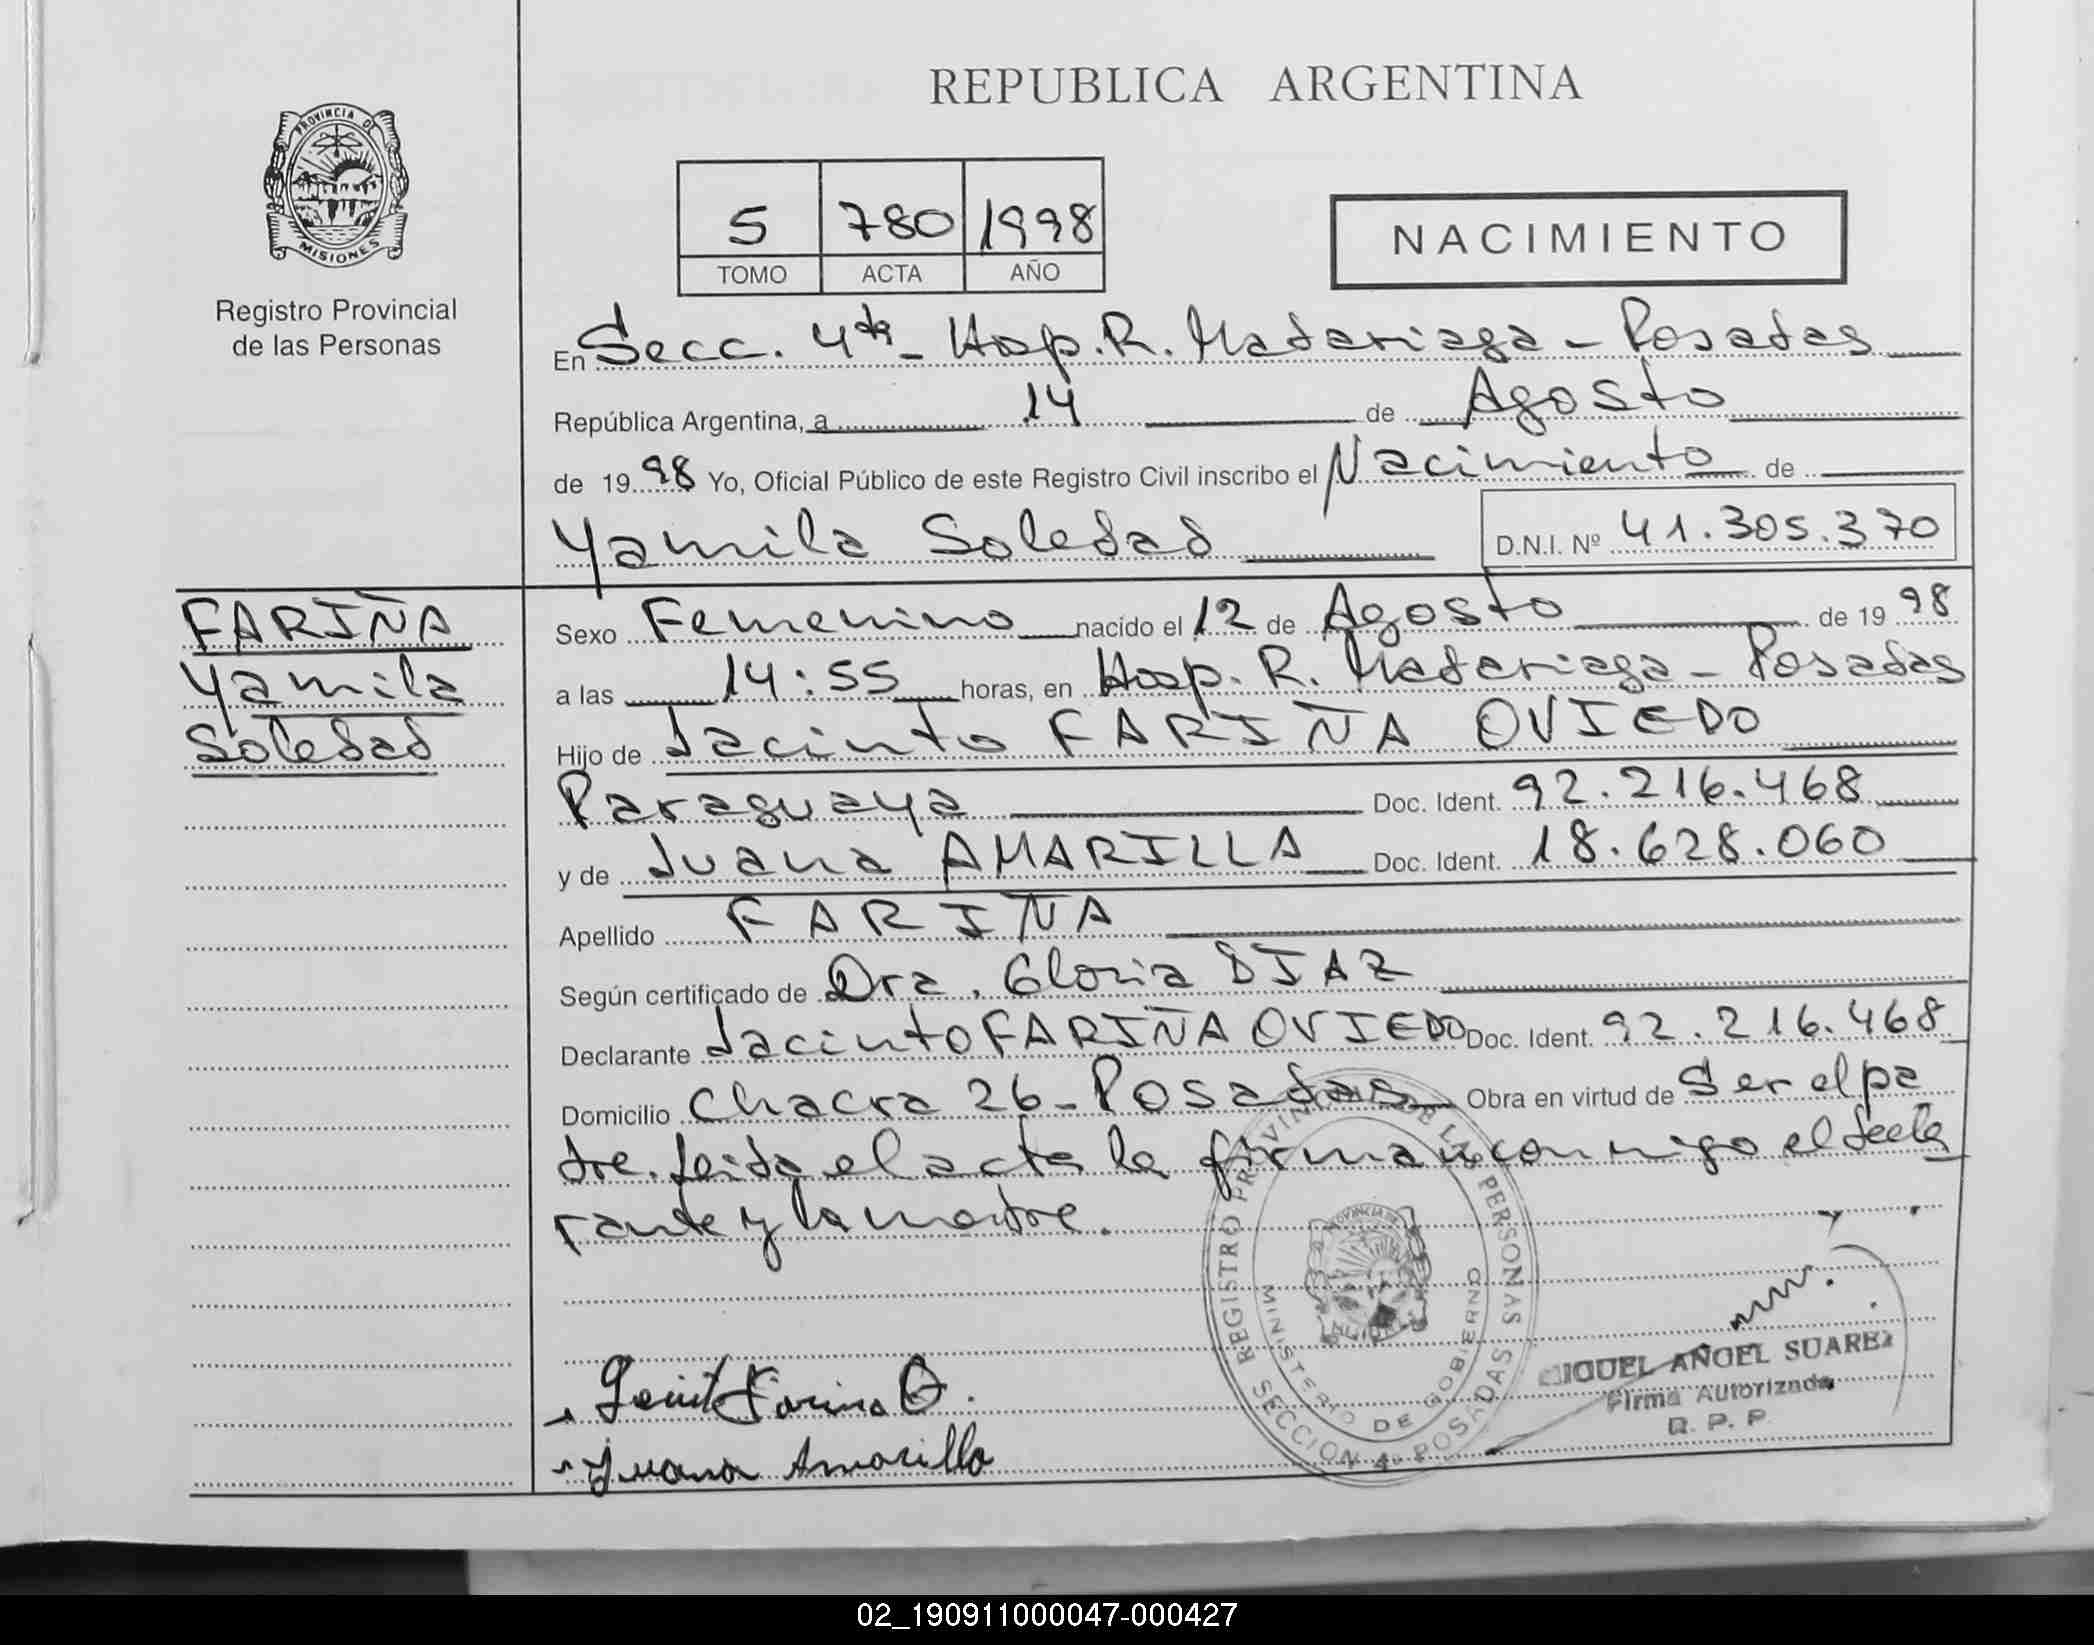 REPUBLICA ARGENTINA
PROVINCIA DE
MISIONES
Registro Provincial
de las Personas
5 780 1998
TOMO ACTA AÑO
NACIMIENTO
En Secc. 4ta - Hosp. R. Madariaga - Posadas
República Argentina, a 14 de Agosto
de 1998 Yo, Oficial Público de este Registro Civil inscribo el Nacimiento de
Yamila Soledad D.N.I. Nº 41.305.370
FARIÑA
Yamila
Soledad
Sexo Femenino nacido el 12 de Agosto de 1998
a las 14:55 horas, en Hosp. R. Madariaga - Posadas
Hijo de Jacinto FARIÑA OVIEDO
Paraguaya Doc. Ident. 92.216.468
y de Juana AMARILLA Doc. Ident. 18.628.060
Apellido FARIÑA
Según certificado de Dra. Gloria DIAZ
Declarante Jacinto FARIÑA OVIEDO Doc. Ident. 92.216.468
Domicilio Chacra 26 - Posadas Obra en virtud de Ser el pa
dre. Leida el acta la firman conmigo el decla
rante y la madre.
REGISTRO PROVINCIAL DE LAS PERSONAS
MINISTERIO DE GOBIERNO
SECCION 4ª POSADAS
MIGUEL ANGEL SUAREZ
Firma Autorizada
R. P. P.
Jacinto Fariña O.
Juana Amarilla
02_190911000047-000427